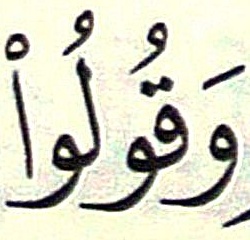 وَقُولُواْ